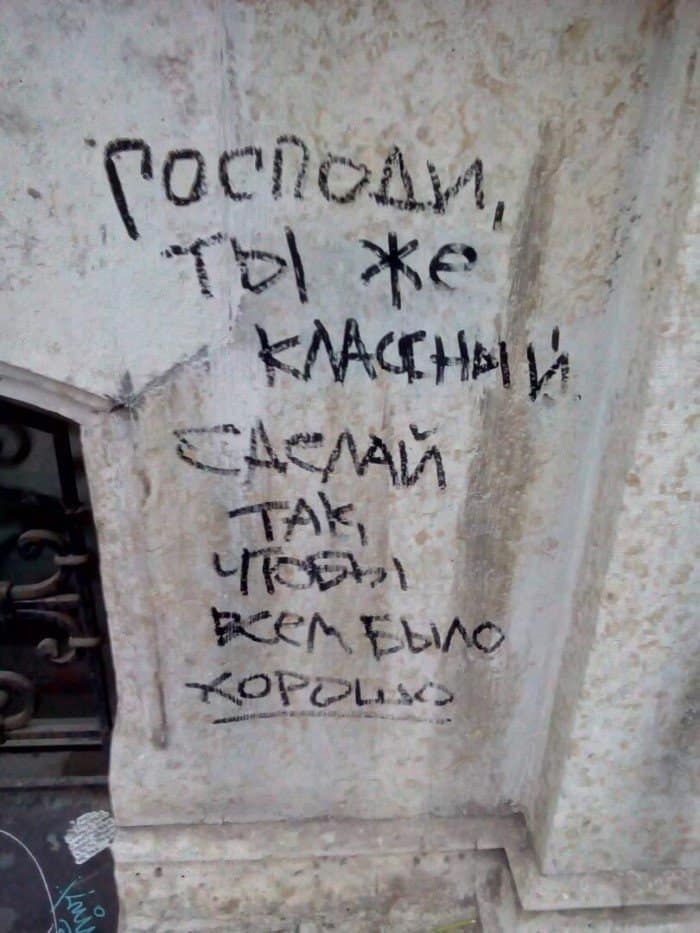 ГОСПОДИ,
ТЫ ЖЕ
КЛАССНЫЙ.
СДЕЛАЙ
ТАК,
ЧТОБЫ
ВСЕМ БЫЛО
ХОРОШО